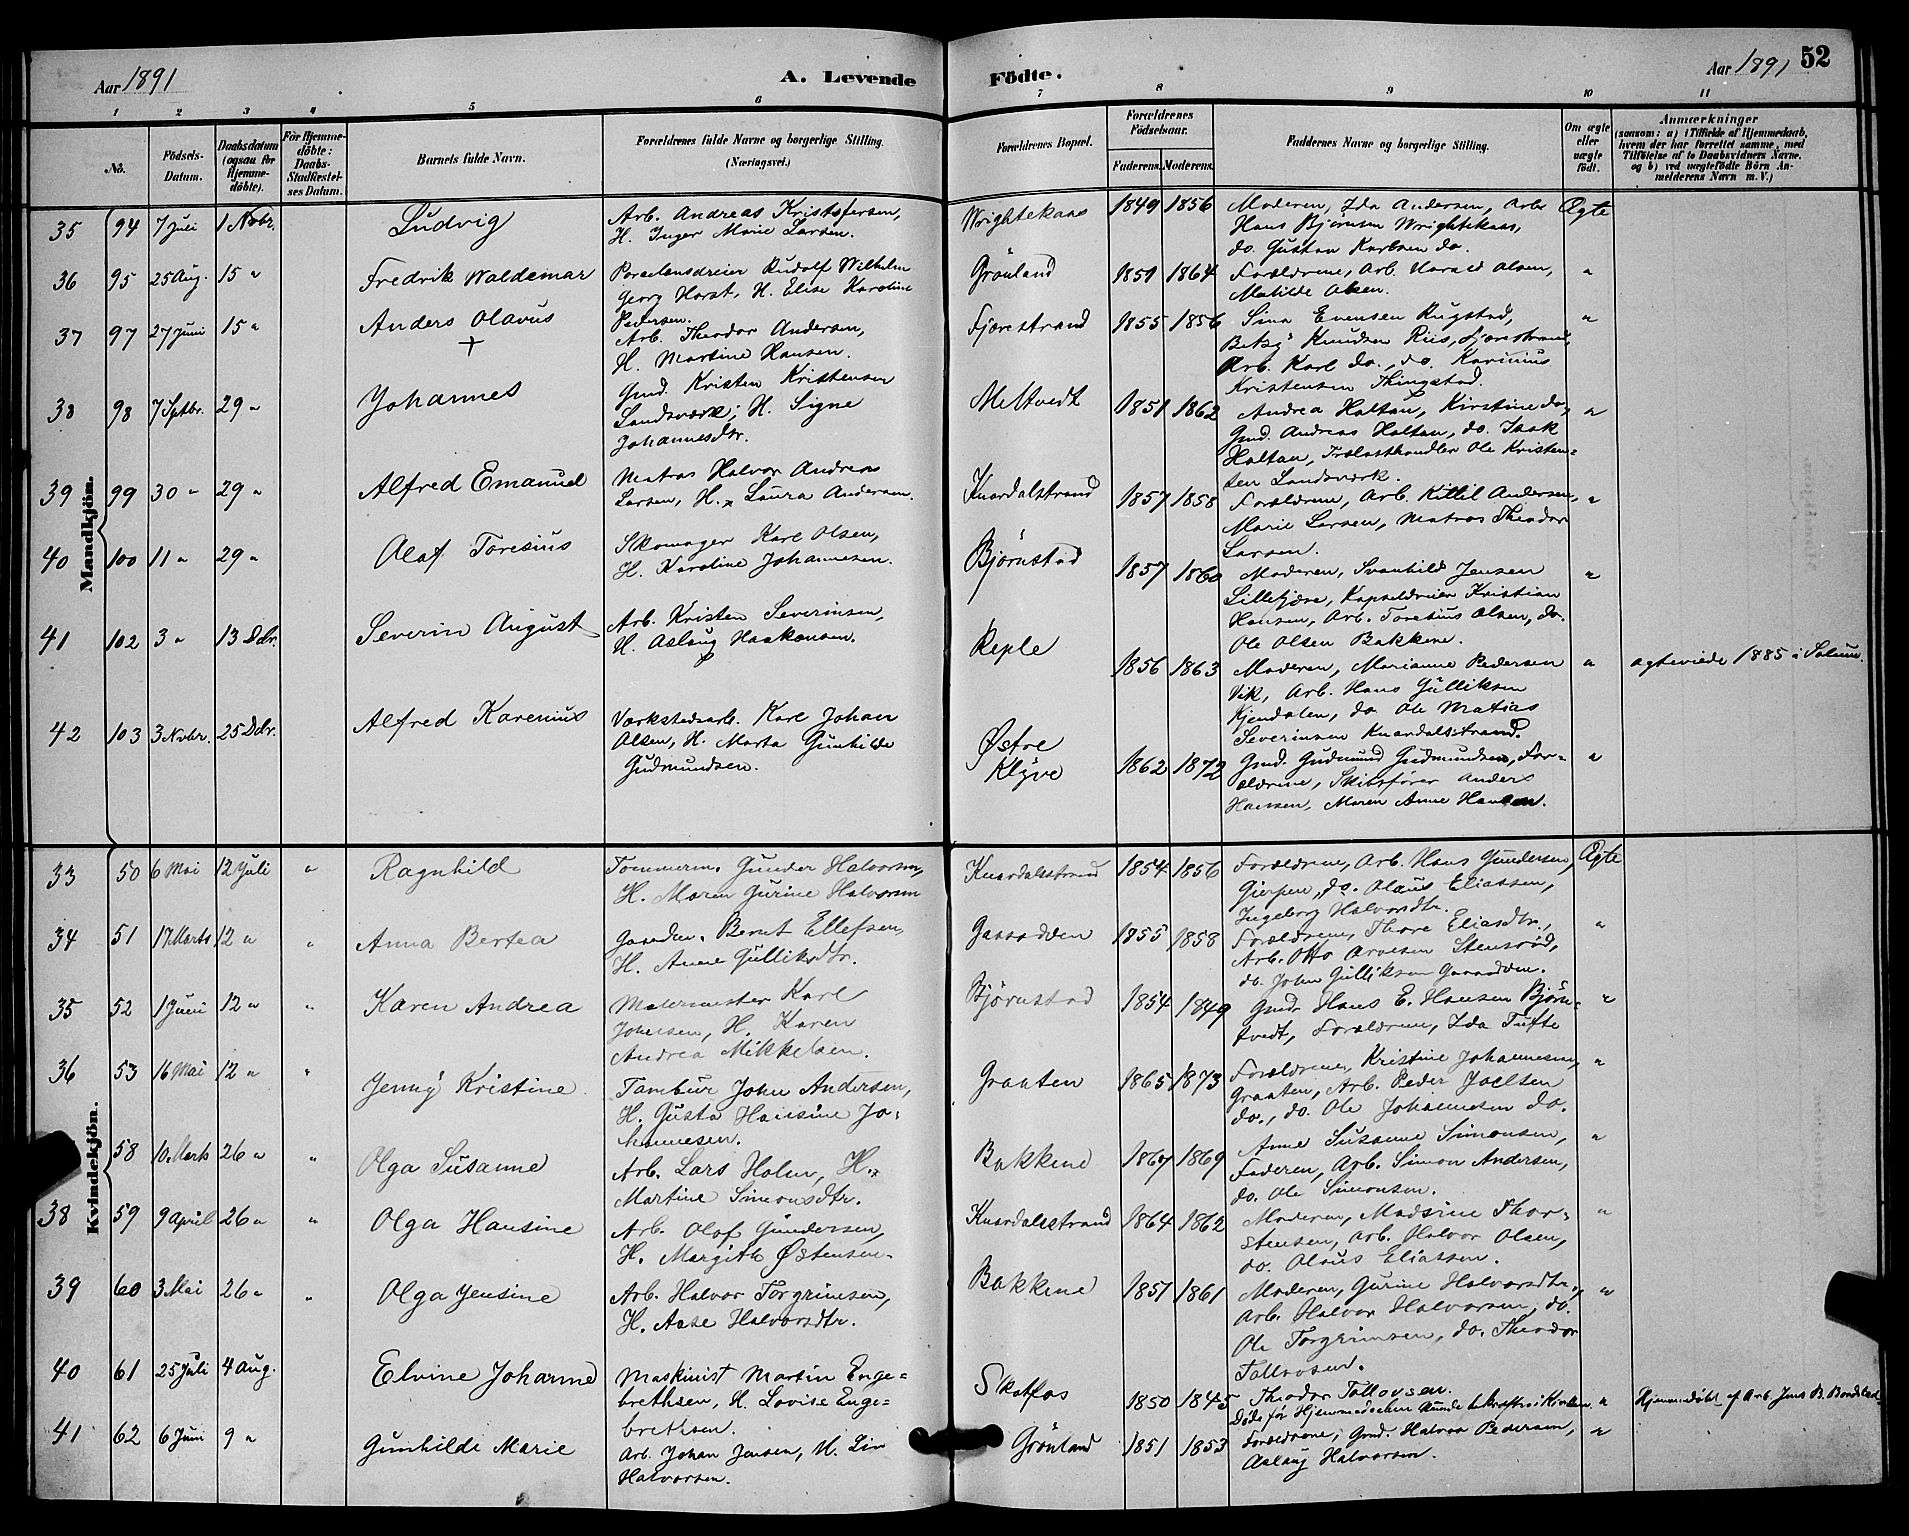 Aar 1891
A. Levende
Födte.
Aar 1891
52
1 2 3 4 5 6 7 8 9 10 11
No.
Födsels-
Datum.
Daabsdatum
(ogsaa for
Hjemme-
döbte).
För Hjemme-
döbte:
Daabs-
Stadfæstel-
ses Datum.
Barnets fulde Navn.
Forældrenes fulde Navne og borgerlige Stilling.
(Næringsvei.)
Forældrenes Bopæl.
Forældrenes
Födselsaar.
Faderens. Moderens.
Faddernes Navne og borgerlige Stilling.
Om ægte
eller
uægte
födt.
Anmærkninger
(saasom: a) i Tilfælde af Hjemmedaab,
hvem der har forrettet samme, med
Tilföielse af to Daabsvidners Navne,
og b) ved uægtefödte Börn An-
melderens Navn m. V.)
Mandkjön.
35 94 7 Juli 1 Novbr. Ludvig
Arb. Andreas Kristofersen,
H. Inger Marie Larsen.
Wrightekaas 1849 1856
Moderen, Ida Andersen, Arb.
Hans Bjørnsen Wrightekaas,
do. Gustav Karlsen do.
Ægte
36 95 25 Aug. 15 " Fredrik Waldemar
Porcelænsdreier Rudolf Wilhelm
Georg Horst, H. Elise Karoline
Pedersen.
Grønland 1851 1864
Forældrene, Arb. Harald Olsen,
Matilde Olsen.
"
37 97 27 Juni 15 " Anders Olavus
+
Arb. Theodor Andersen,
H. Martine Hansen.
Fjærestrand 1855 1856
Sina Evensen Rugstad,
Betsy Knudsen Riis, Fjærestrand,
Arb. Karl do., do. Karinius
Kristensen Thingstad.
"
38 98 7 Septbr. 29 " Johannes
Gmd. Kristen Kristensen
Landsværk; H. Signe
Johannesdtr.
Meltvedt 1851 1862
Andrea Holtan, Kirstine do.,
Gmd. Andreas Holtan, do. Isak
Holtan, Trælasthandler Ole Kristen-
sen Landsværk.
"
39 99 30 " 29 " Alfred Emanuel
Matros Halvor Andreas
Larsen, H. Laura Andersen.
Knardalstrand 1857 1858
Forældrene, Arb. Kittil Andersen,
Marie Larsen, Matros Theodor
Larsen.
"
40 100 11 " 29 " Olaf Toresius
Skomager Karl Olsen,
H. Karoline Johannesen.
Bjørnstad 1857 1860
Moderen, Svanhild Jensen
Lillefjære, Kapseldreier Kristian
Hansen, Arb. Toresius Olsen, do.
Ole Olsen Bakkene.
"
41 102 3 " 13 Dcbr. Severin August
Arb. Kristen Severinsen,
H. Aslaug Haakonsen.
Reple 1856 1863
Moderen, Marianne Pedersen
Vik, Arb. Hans Gulliksen
Kjendalen, do. Ole Matias
Severinsen Knardalstrand.
"
ægteviede 1885 i Solum.
42 103 3 Novbr. 25 Dcbr. Alfred Karenius
Værkstedsarb. Karl Johan
Olsen, H. Marta Gunhilde
Gudmundsen.
Østre
Klyve 1862 1872
Gmd. Gudmund Gudmundsen, For-
ældrene, Skibsfører Anders
Hansen, Maren Anne Hansen.
"
Kvindekjön.
33 50 6 Mai 12 Juli " Ragnhild
Tømmerm. Gunder Halvorsen,
H. Maren Gurine Halvorsen
Knardalstrand 1854 1856
Forældrene, Arb. Hans Gundersen,
Gjerpen, do. Olaus Eliassen,
Ingeborg Halvordtr.
Ægte
34 51 17 Marts 12 " " Anna Bertea
Bernt Ellefsen,
H. Anne Gulliksdtr.
Gaasodden 1855 1858
Forældrene, Thore Eliasdtr.,
Arb. Otto Arvesen Stensrød,
do. John Gulliksen Gaasodden.
"
35 52 1 Juni 12 " " Karen Andrea
Malermester Karl
Johnsen, H. Karen
Andrea Mikkelsen.
Bjørnstad 1854 1849
Gmd. Hans E. Hansen Bjørn-
tvedt, Forældrene, Ida Tufte
"
36 53 16 Mai 12 " " Jenny Kristine
Tambur John Andersen,
H. Gusta Hansine Jo-
hannesen.
Graaten 1865 1873
Forældrene, Kristine Johannesen,
Graaten, Arb. Peder Joelsen
do., do. Ole Johannesen do.
"
58 10 Marts 26 " " Olga Susanne
Arb. Lars Holm, H.
Martine Simonsdtr.
Bakkene 1867 1869
Anne Susanne Simonsen,
Faderen, Arb. Simon Andersen,
do. Ole Simonsen.
"
38 59 9 April 26 " " Olga Hansine
Arb. Olaf Gundersen,
H. Margith Østensen.
Knardalsstrand 1864 1862
Moderen, Madsine Thor-
stensen, Arb. Halvor Olsen,
do. Olaus Eliassen.
"
39 60 3 Mai 26 " " Olga Jensine
Arb. Halvor Torgrimsen,
H. Aase Halvorsdtr.
Bakkene 1851 1861
Moderen, Gurine Halvorsdtr.,
Arb. Halvor Halvorsen, do.
Ole Torgrimsen, do. Theodor
Tollevsen.
"
40 61 25 Juli 4 Aug. Elvine Johanne
Maskinist Martin Enge-
brethsen, H. Lovise Enge-
brethsen.
Skotfos 1850 1845
Theodor Tollevsen.
Døde før Hjemmedaaben kunde bekræftes i Kirken.
"
Hjemmedøbt af Arb. Jens B.
41 62 6 Juni 9 " Gunhilde Marie
Arb. Johan Jensen, H. Lin
Halvorsen.
Grønland 1851 1853
Forældrene, Gmd. Halvor Pedersen,
Aslaug Halvorsen.
"